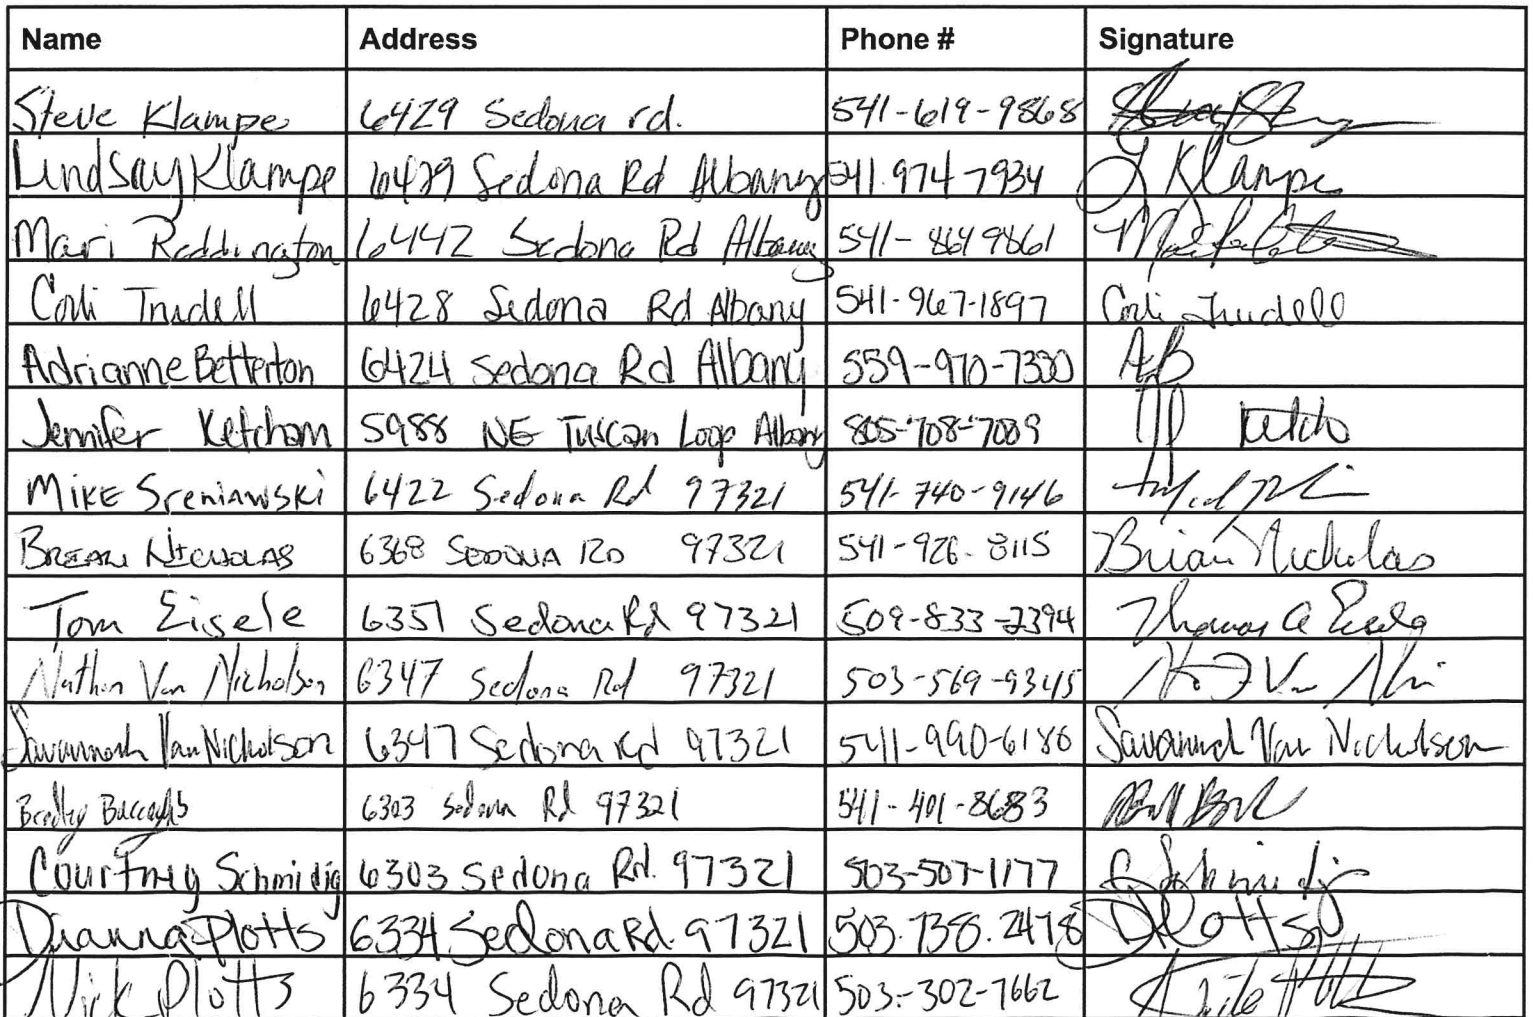 Name Address Phone # Signature
Steve Klampe 6429 Sedona rd. 541-619-9868
Lindsay Klampe 6429 Sedona Rd Albany 541.974-7934 L Klampe
Mari Reddington 6442 Sedona Rd Albany 541-864 9861
Cori Trudell 6428 Sedona Rd Albany 541-967-1897 Cori Trudell
Adrianne Betterton 6424 Sedona Rd Albany 559-970-7330 AB
Jennifer Ketcham 5988 NE Tuscan Loop Albany 805-708-7089
MIKE Sreniawski 6422 Sedona Rd 97321 541-740-9146
BRIAN NICHOLAS 6368 SEDONA RD 97321 541-926-8115 Brian Nicholas
Tom Eisele 6351 Sedona Rd 97321 509-833-2394 Thomas A Eisele
Nathan Van Nicholson 6347 Sedona Rd 97321 503-569-9345
Savannah Van Nicholson 6347 Sedona Rd 97321 541-990-6180 Savannah Van Nicholson
Bradley 6303 Sedona Rd 97321 541-401-8683
Courtney Schmidig 6303 Sedona Rd. 97321 503-507-1177 C Schmidig
Dianna Plotts 6334 Sedona Rd. 97321 503.738.2478 D Plotts
Nick Plotts 6334 Sedona Rd 97321 503-302-7662